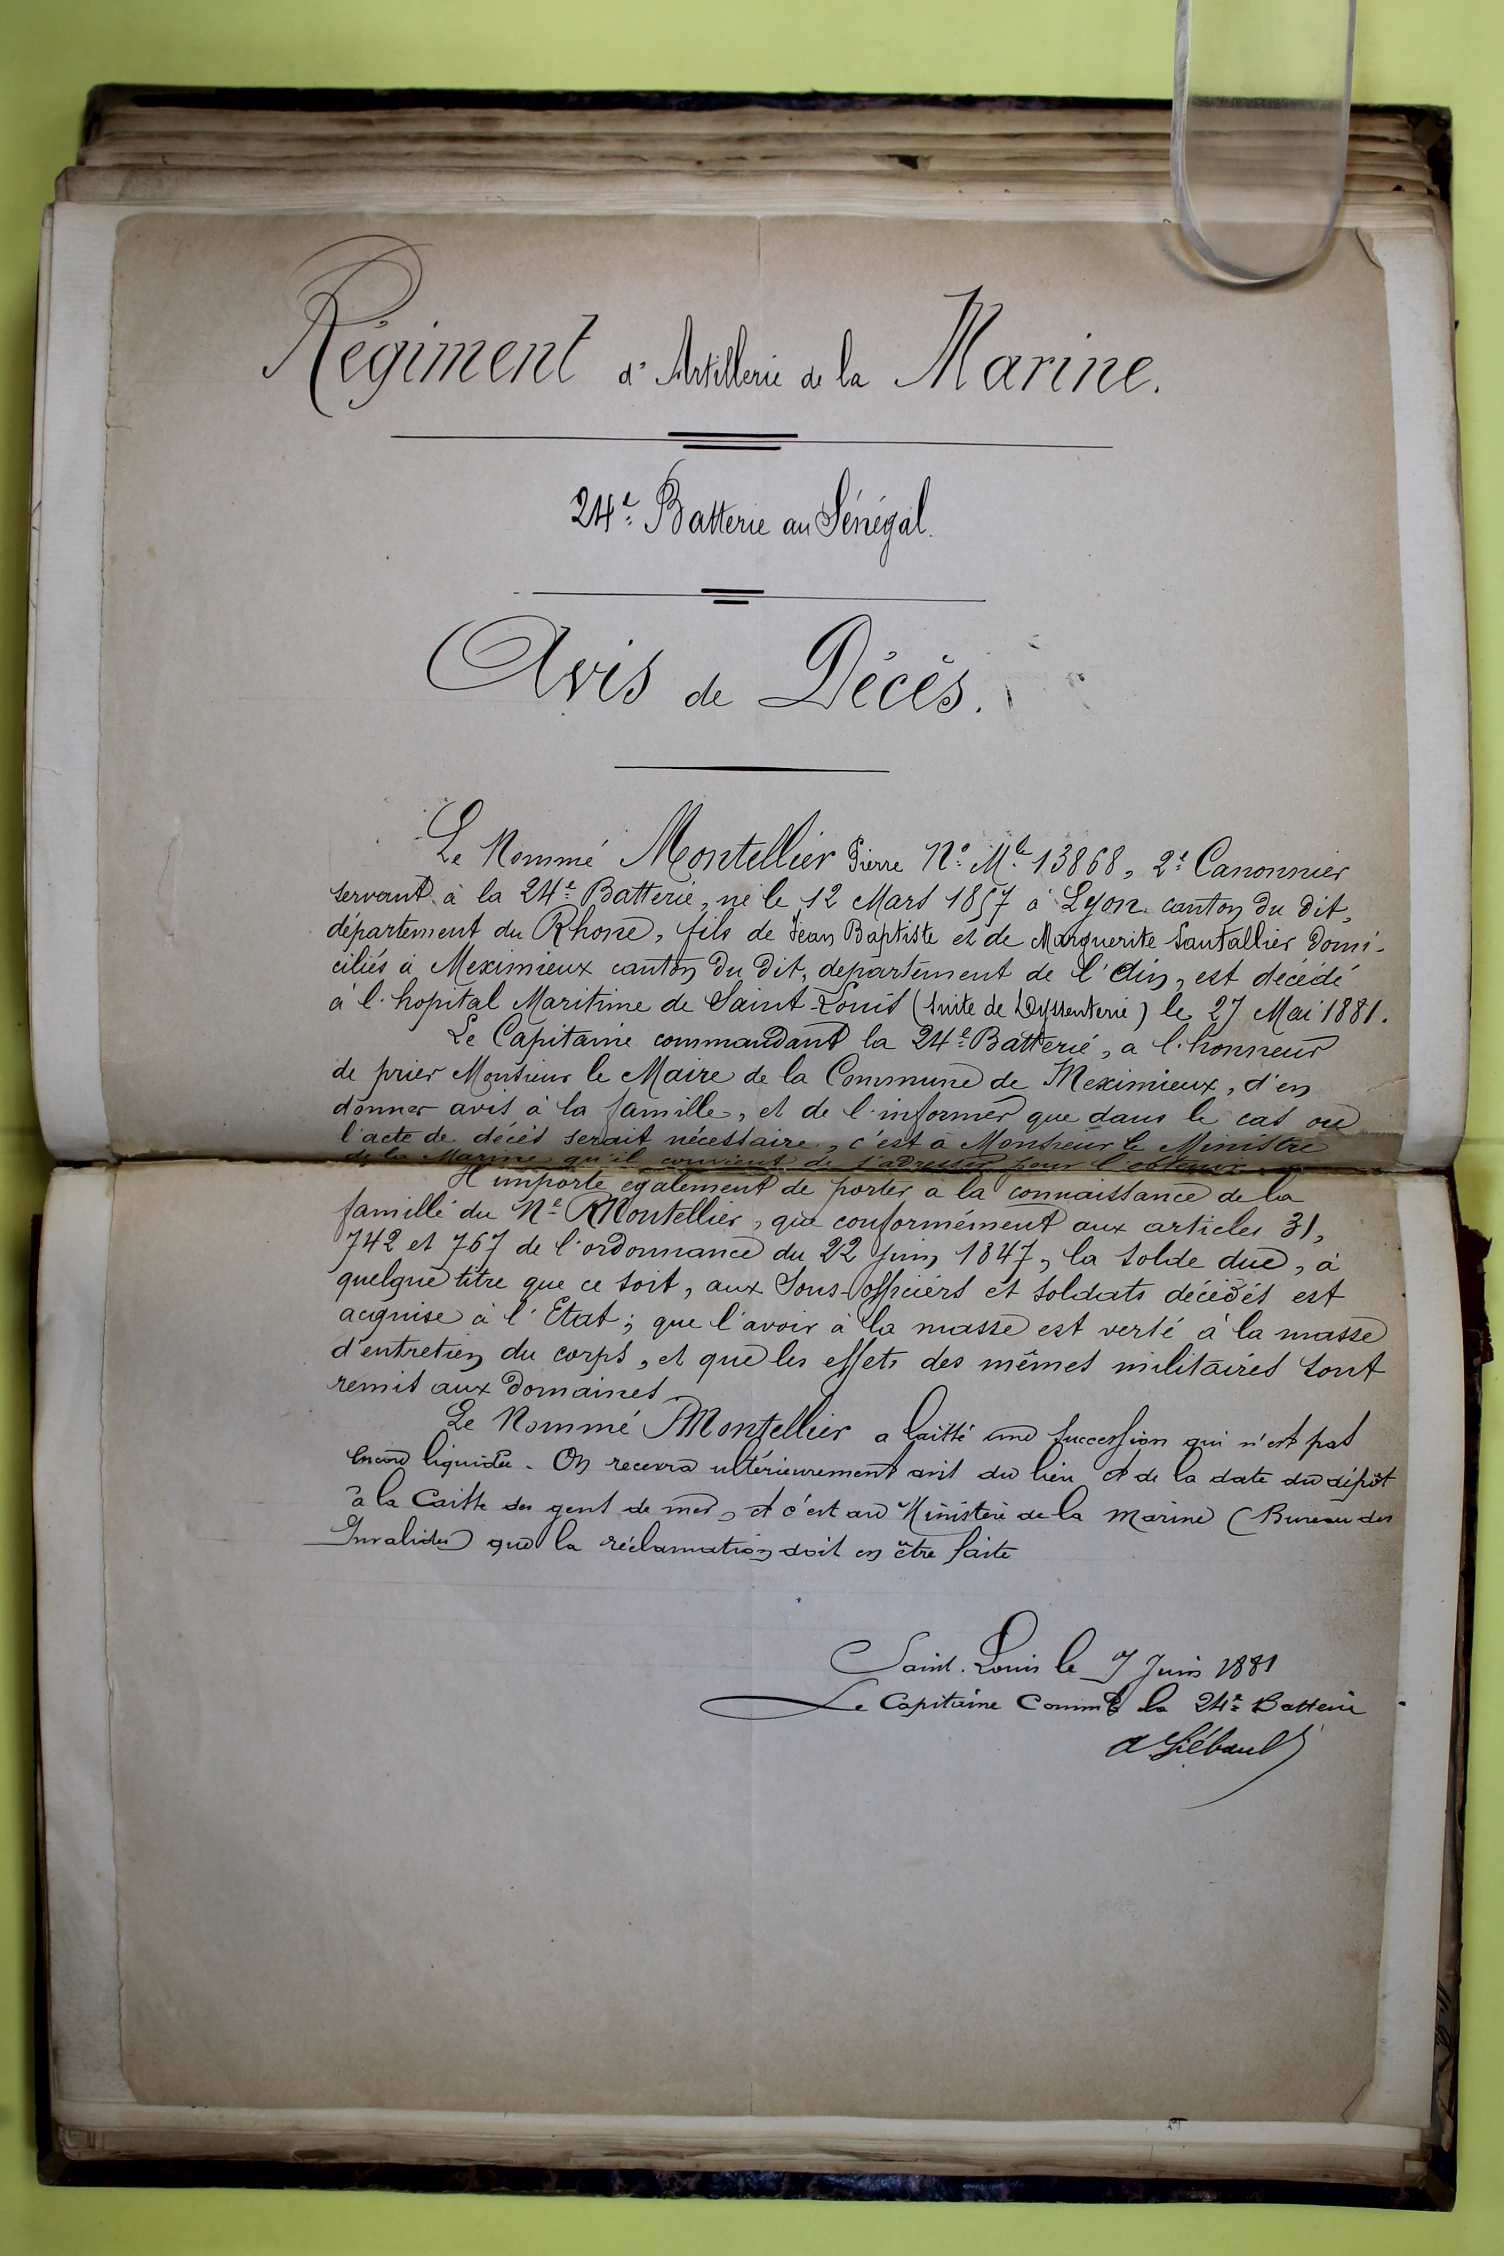 Régiment d'Artillerie de la Marine.
24e Batterie au Sénégal.
Avis de Décès.
Le Nommé Montellier Pierre No Mle 13868, 2e Canonnier
servant à la 24e Batterie, né le 12 Mars 1857 à Lyon canton du dit,
département du Rhone, fils de Jean Baptiste et de Marguerite Santallier domi-
ciliés à Meximieux canton du dit, département de l'Ain, est décédé
à l'hopital Maritime de Saint-Louis (suite de Dyssenterie) le 27 Mai 1881.
Le Capitaine commandant la 24e Batterie, a l'honneur
de prier Monsieur le Maire de la Commune de Meximieux, d'en
donner avis à la famille, et de l'informer que dans le cas où
l'acte de décès serait nécessaire, c'est à Monsieur le Ministre
de la Marine qu'il convient de s'adresser pour l'obtenir.
Il importe également de porter à la connaissance de la
famille du Né Montellier, que conformément aux articles 31,
742 et 767 de l'ordonnance du 22 Juin 1847, la solde due, à
quelque titre que ce soit, aux Sous-officiers et soldats décédés est
acquise à l'Etat; que l'avoir à la masse est versé à la masse
d'entretien du corps, et que les effets des mêmes militaires sont
remis aux domaines.
Le Nommé Montellier a laissé une succession qui n'est pas
encore liquidée. On recevra ultérieurement avis du lieu et de la date du dépôt
à la Caisse des gens de mer, et c'est au Ministère de la Marine (Bureau des
Invalides) que la réclamation doit en être faite
Saint-Louis le 7 Juin 1881
Le Capitaine Commt la 24e Batterie